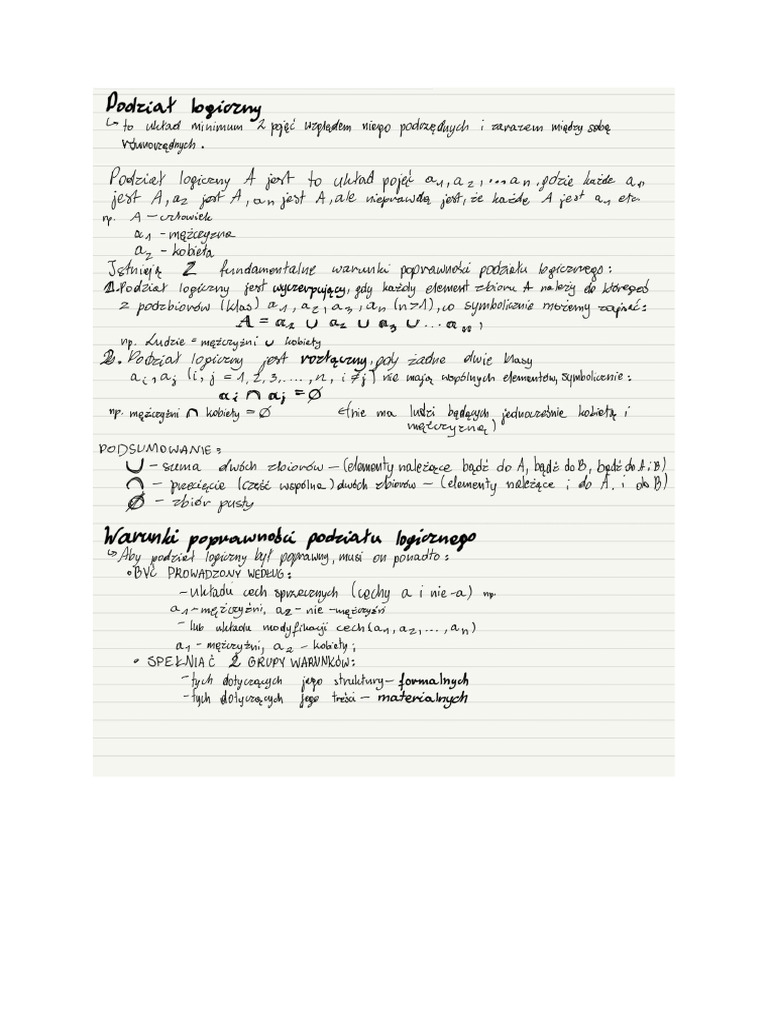 Podział logiczny
↳ to układ minimum 2 pojęć względem niego podrzędnych i zarazem między sobą
równorzędnych.
Podział logiczny A jest to układ pojęć a1, a2, ... an, gdzie każde an
jest A, a2 jest A, an jest A, ale nieprawdą jest, że każde A jest a1 etc.
np. A – człowiek
a1 - mężczyzna
a2 - kobieta
Istnieją 2 fundamentalne warunki poprawności podziału logicznego:
1. Podział logiczny jest wyczerpujący, gdy każdy element zbioru A należy do któregoś
z podzbiorów (klas) a1, a2, a3, an (n>1), co symbolicznie możemy zapisać:
A = a1 ∪ a2 ∪ a3 ∪ ... an,
np. Ludzie = mężczyźni ∪ kobiety
2. Podział logiczny jest rozłączny, gdy żadne dwie klasy
ai, aj (i, j = 1, 2, 3, ..., n, i ≠ j) nie mają wspólnych elementów, symbolicznie:
ai ∩ aj = ∅
np. mężczyźni ∩ kobiety = ∅ (nie ma ludzi będących jednocześnie kobietą i
mężczyzną)
PODSUMOWANIE:
∪ – suma dwóch zbiorów – (elementy należące bądź do A, bądź do B, bądź do A i B)
∩ – przecięcie (część wspólna) dwóch zbiorów – (elementy należące i do A. i do B)
∅ – zbiór pusty
Warunki poprawności podziału logicznego
↳ Aby podział logiczny był poprawny, musi on ponadto:
• BYĆ PROWADZONY WEDŁUG:
– układu cech sprzecznych (cechy a i nie-a) np.
a1 – mężczyźni, a2 – nie-mężczyźni
– lub układu modyfikacji cech (a1, a2, ..., an)
a1 - mężczyźni, a2 – kobiety;
• SPEŁNIAĆ 2 GRUPY WARUNKÓW:
– tych dotyczących jego struktury – formalnych
– tych dotyczących jego treści – materialnych